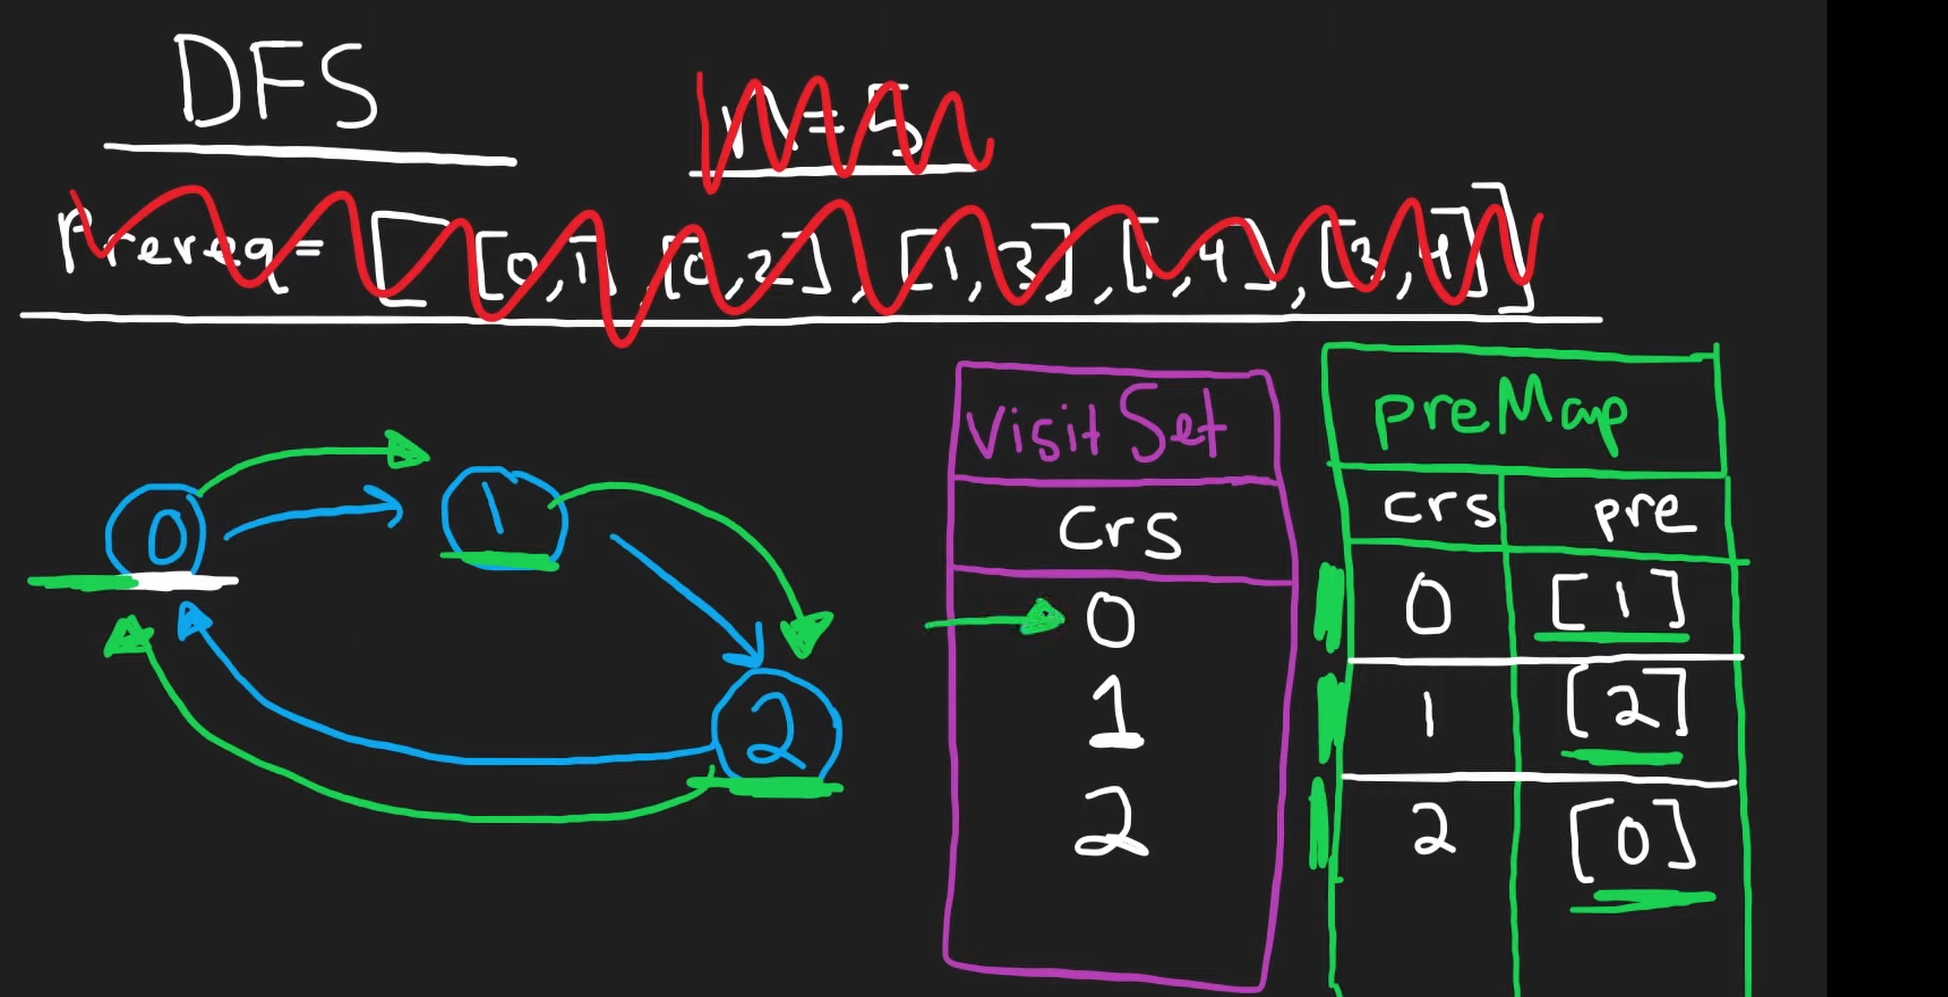 DFS
n = 5
Prereq = [[0,1],[0,2],[1,3],[1,4],[3,4]]
0
1
2
Visit Set
crs
0
1
2
preMap
crs pre
0 [1]
1 [2]
2 [0]